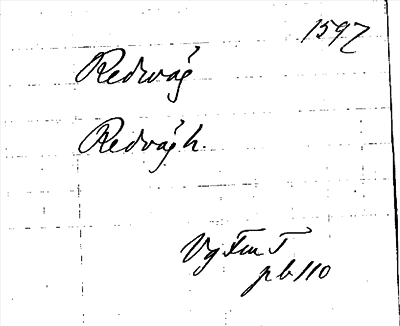 1597
Redwåg
Redvågh.
Vg Fm I
p b 110